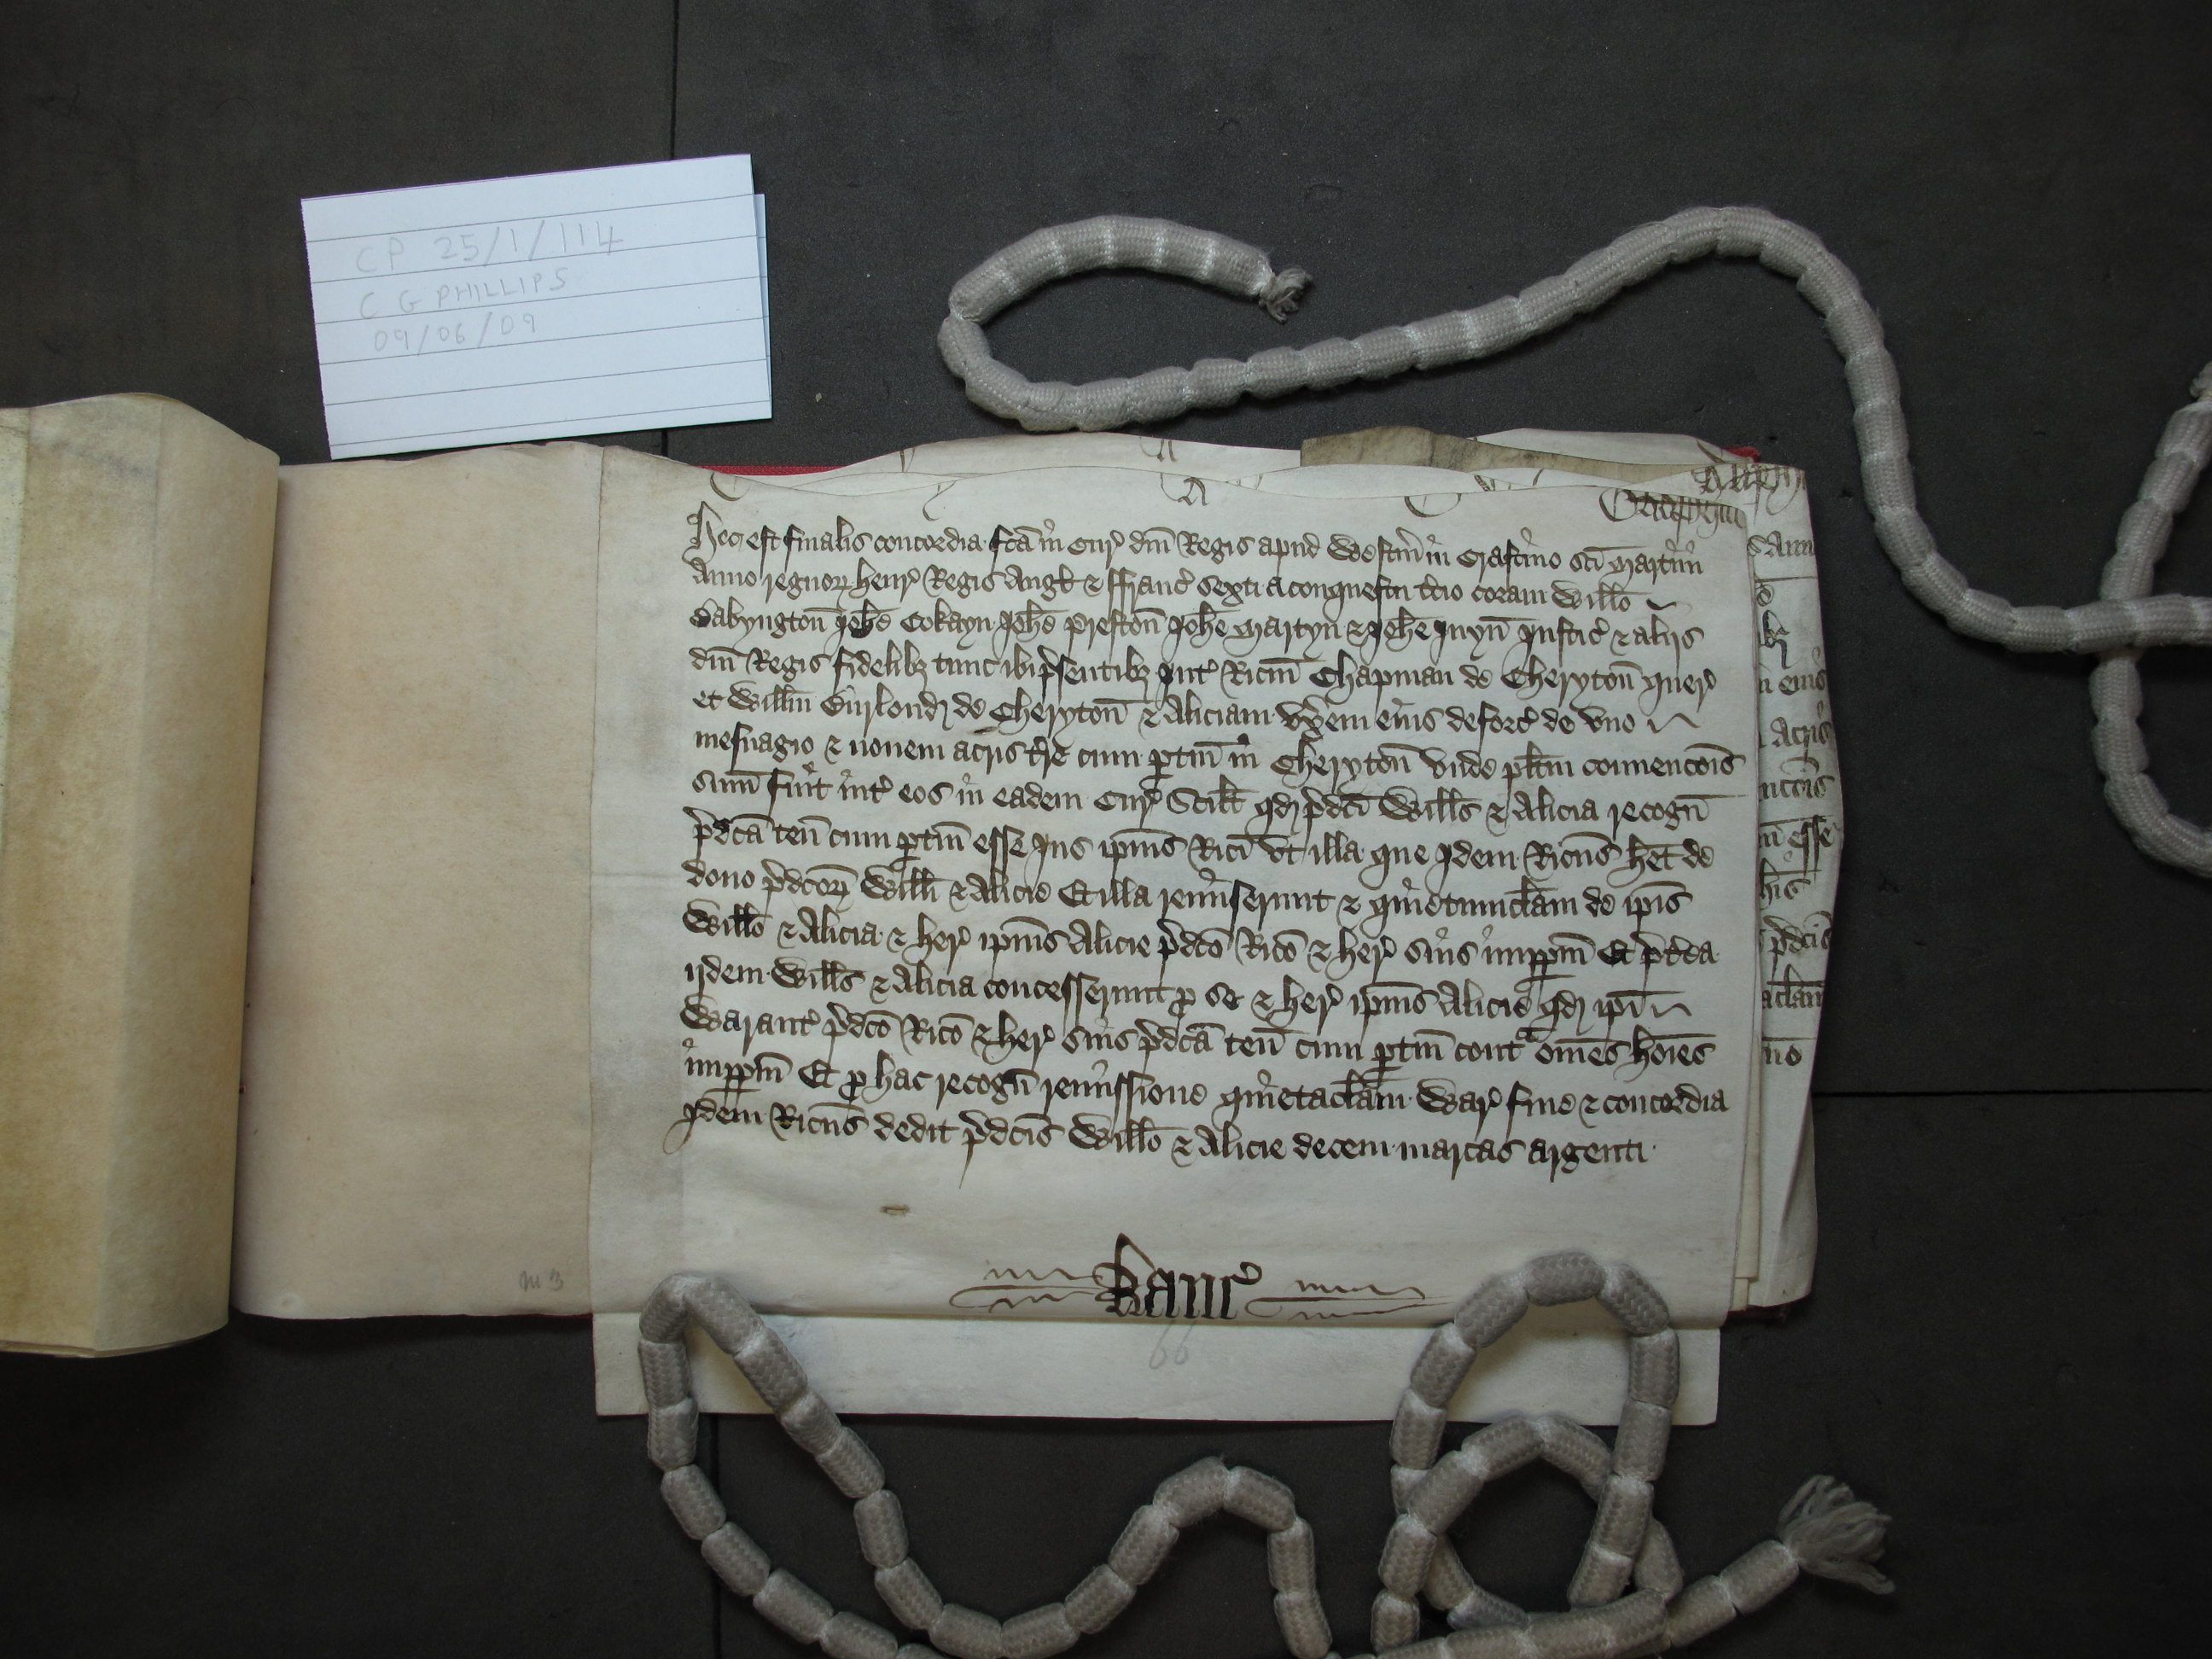 CP 25/1/114
C G PHILLIPS
09/06/09
Hec est finalis concordia fcā in Cur̉ dn̄i Regis apud Westm̄ in Crastino sc̄i Martini
Anno regnoꝝ Henr̉ Regis Angł ⁊ ffranc̉ sexti a conquestu t̉cio coram Witło
Babyngton̄ Joħe Cokayn Joħe Preston̄ Joħe Martyn ⁊ Joħe Juyn̄ Justic̉ ⁊ alijs
dn̄i Regis fidelibꝫ tunc ibi p̉sentibꝫ Int̉ Ricm̄ Chapman de Cheryton̄ quer̉
et Witłm Burlond de Cheryton̄ ⁊ Aliciam vx̉em eius deforc̉ de vno
mesuagio ⁊ nouem acris t̉re cum ꝑtin̄ in Cheryton̄ vnde plītm conuenc̄ois
sum̄ fuit int̉ eos in eadem Cur̉ Scilt qd p̉dc̄i Witłs ⁊ Alicia recogn̄
p̉dc̄a ten̄ cum ꝑtin̄ esse Jus ip̄ius Ric̄i vt illa que Idem Ric̄us hēt de
dono p̉dc̄oꝝ Witłi ⁊ Alicie Et illa remiserunt ⁊ quietumclam̄ de ip̄is
Witło ⁊ Alicia ⁊ her̉ ip̄ius Alicie p̉dc̄o Ric̄o ⁊ her̉ suis imꝑpm̄ Et p̉t̉ea
ijdem Witłs ⁊ Alicia concesserunt ꝓ se ⁊ her̉ ip̄ius Alicie qd ip̄i
Warant̉ p̉dc̄o Ric̄o ⁊ her̉ suis p̉dc̄a ten̄ cum ꝑtin̄ contᵃ om̄es hoīes
imꝑpm̄ Et ꝓ hac recogn̄ remissione quietaclam̄ War̉ fine ⁊ concordia
Idem Ric̄us dedit p̉dc̄is Witło ⁊ Alicie decem marcas argenti
kanc̉
66
m 3